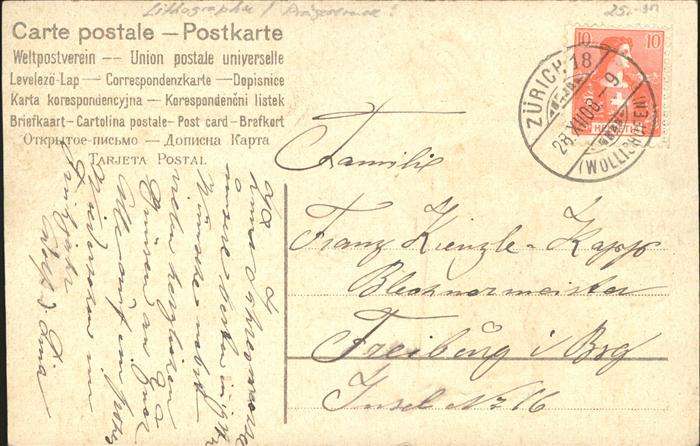 Lithographie / Prägedruck!
25.-
Carte postale — Postkarte
Weltpostverein — Union postale universelle
Levelező-Lap — Correspondenzkarte — Dopisnice
Karta korespondencyjna — Korespondenční listek
Briefkaart — Cartolina postale — Post card — Brefkort
Открытое-письмо — Дописна Карта
Tarjeta Postal
10 10
HELVETIA
ZÜRICH 18
28.XII.08.-9
(WOLLISHOFEN)
Familie
Franz Kienzle-Kapp
Blechnermeister
Freiburg i/Brg
Insel No 16
unsere besten
Wünsche nebst
vielen herzlichen
Grüssen an
Wiedersehen im
Frühjahr